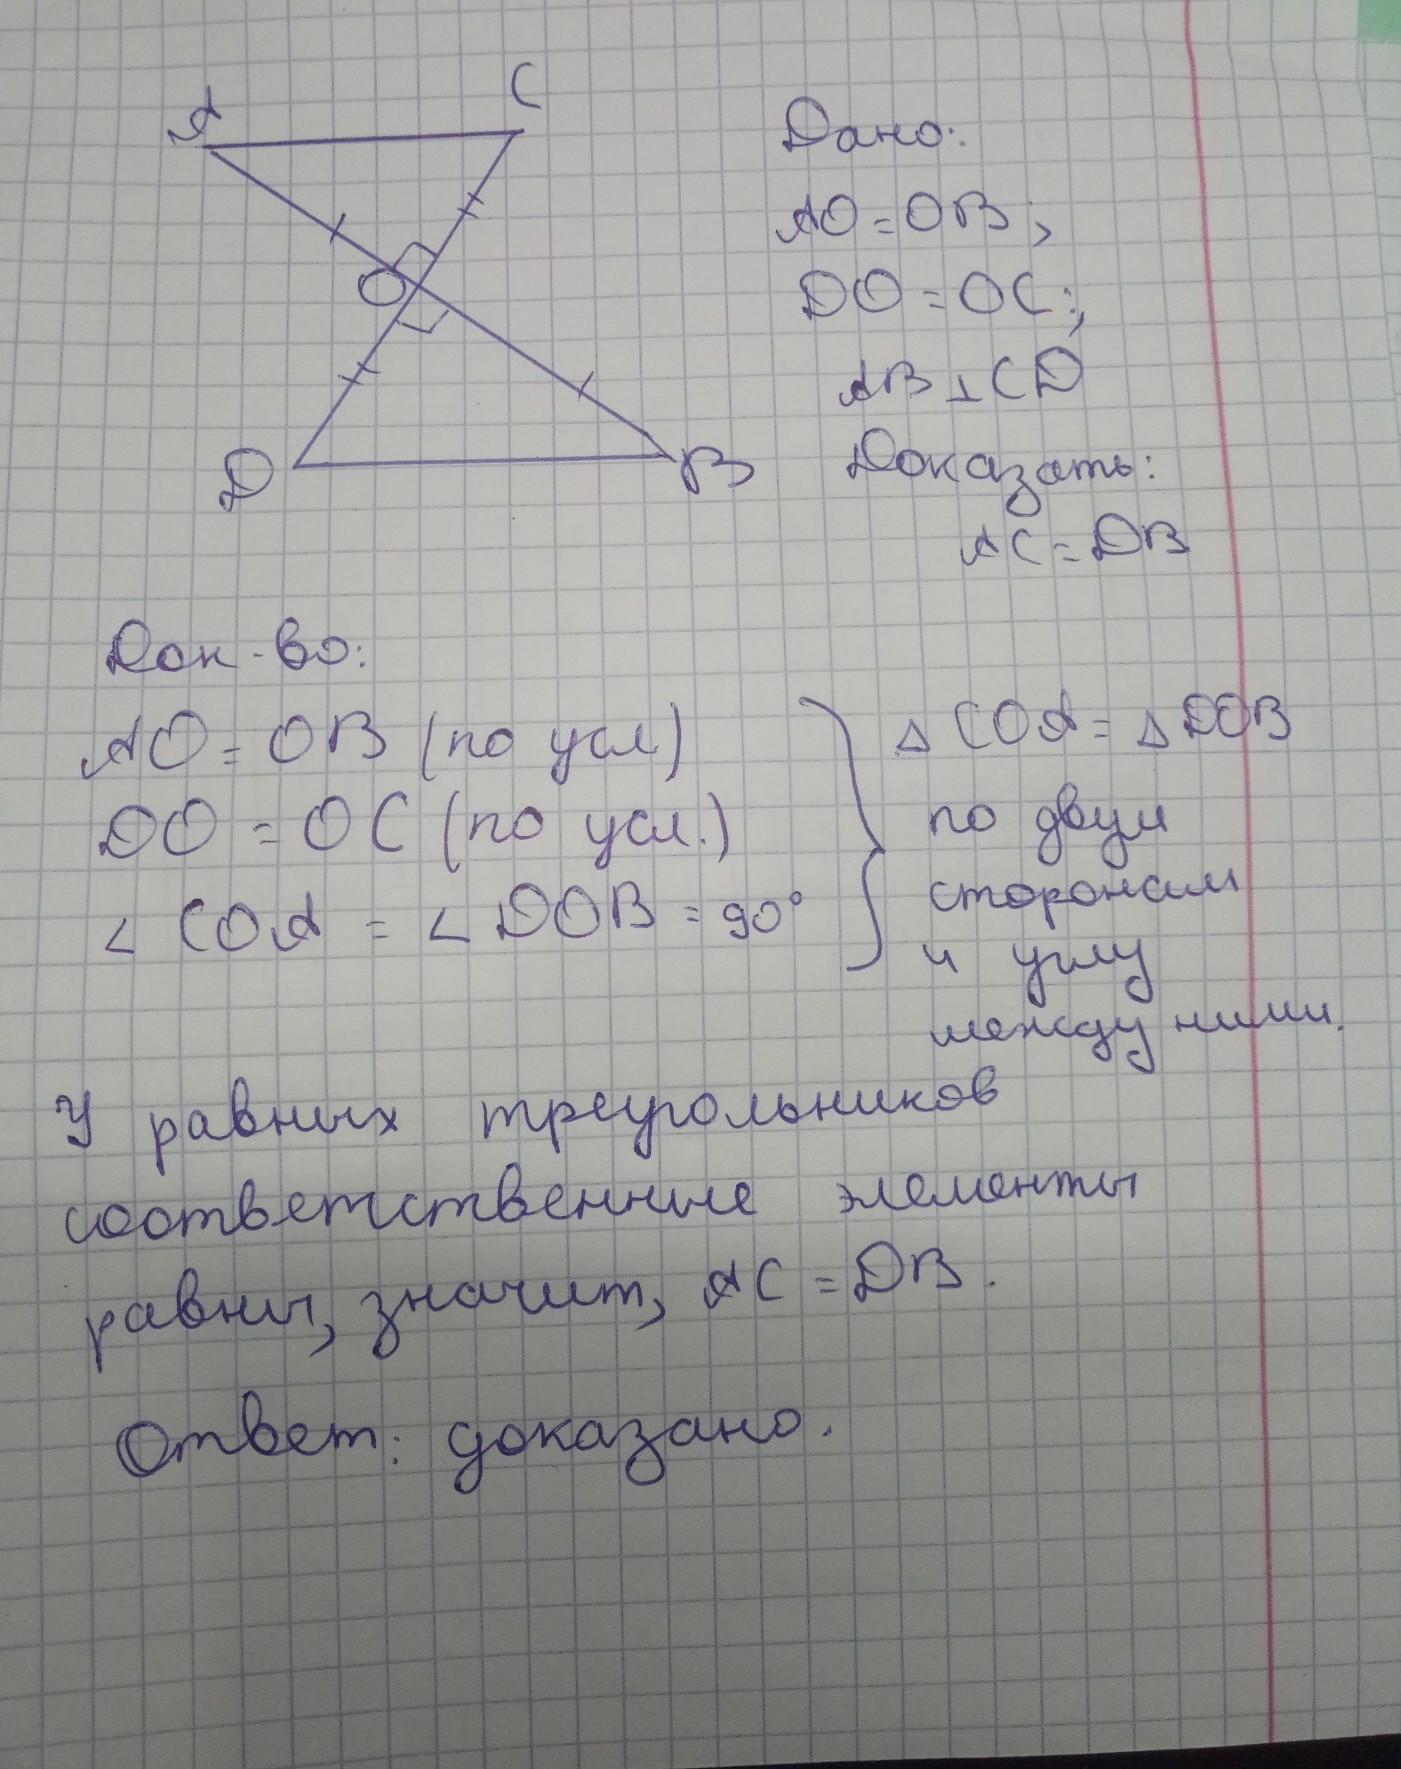 A
C
O
D
B
Дано:
AO = OB;
DO = OC;
AB ⊥ CD
Доказать:
AC = DB
Док-во:
AO = OB (по усл)
DO = OC (по усл.)
∠ COA = ∠ DOB = 90°
△ COA = △ DOB
по двум
сторонам
и углу
между ними.
У равных треугольников
соответственные элементы
равны, значит, AC = DB.
Ответ: доказано.